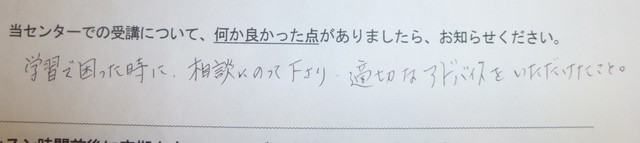 当センターでの受講について、何か良かった点がありましたら、お知らせください。
学習で困った時に、相談にのって下さり、適切なアドバイスをいただけたこと。